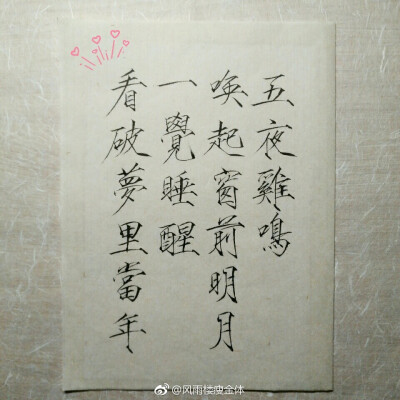 五夜雞鳴
喚起窗前明月
一覺睡醒
看破夢里當年
@风雨楼瘦金体